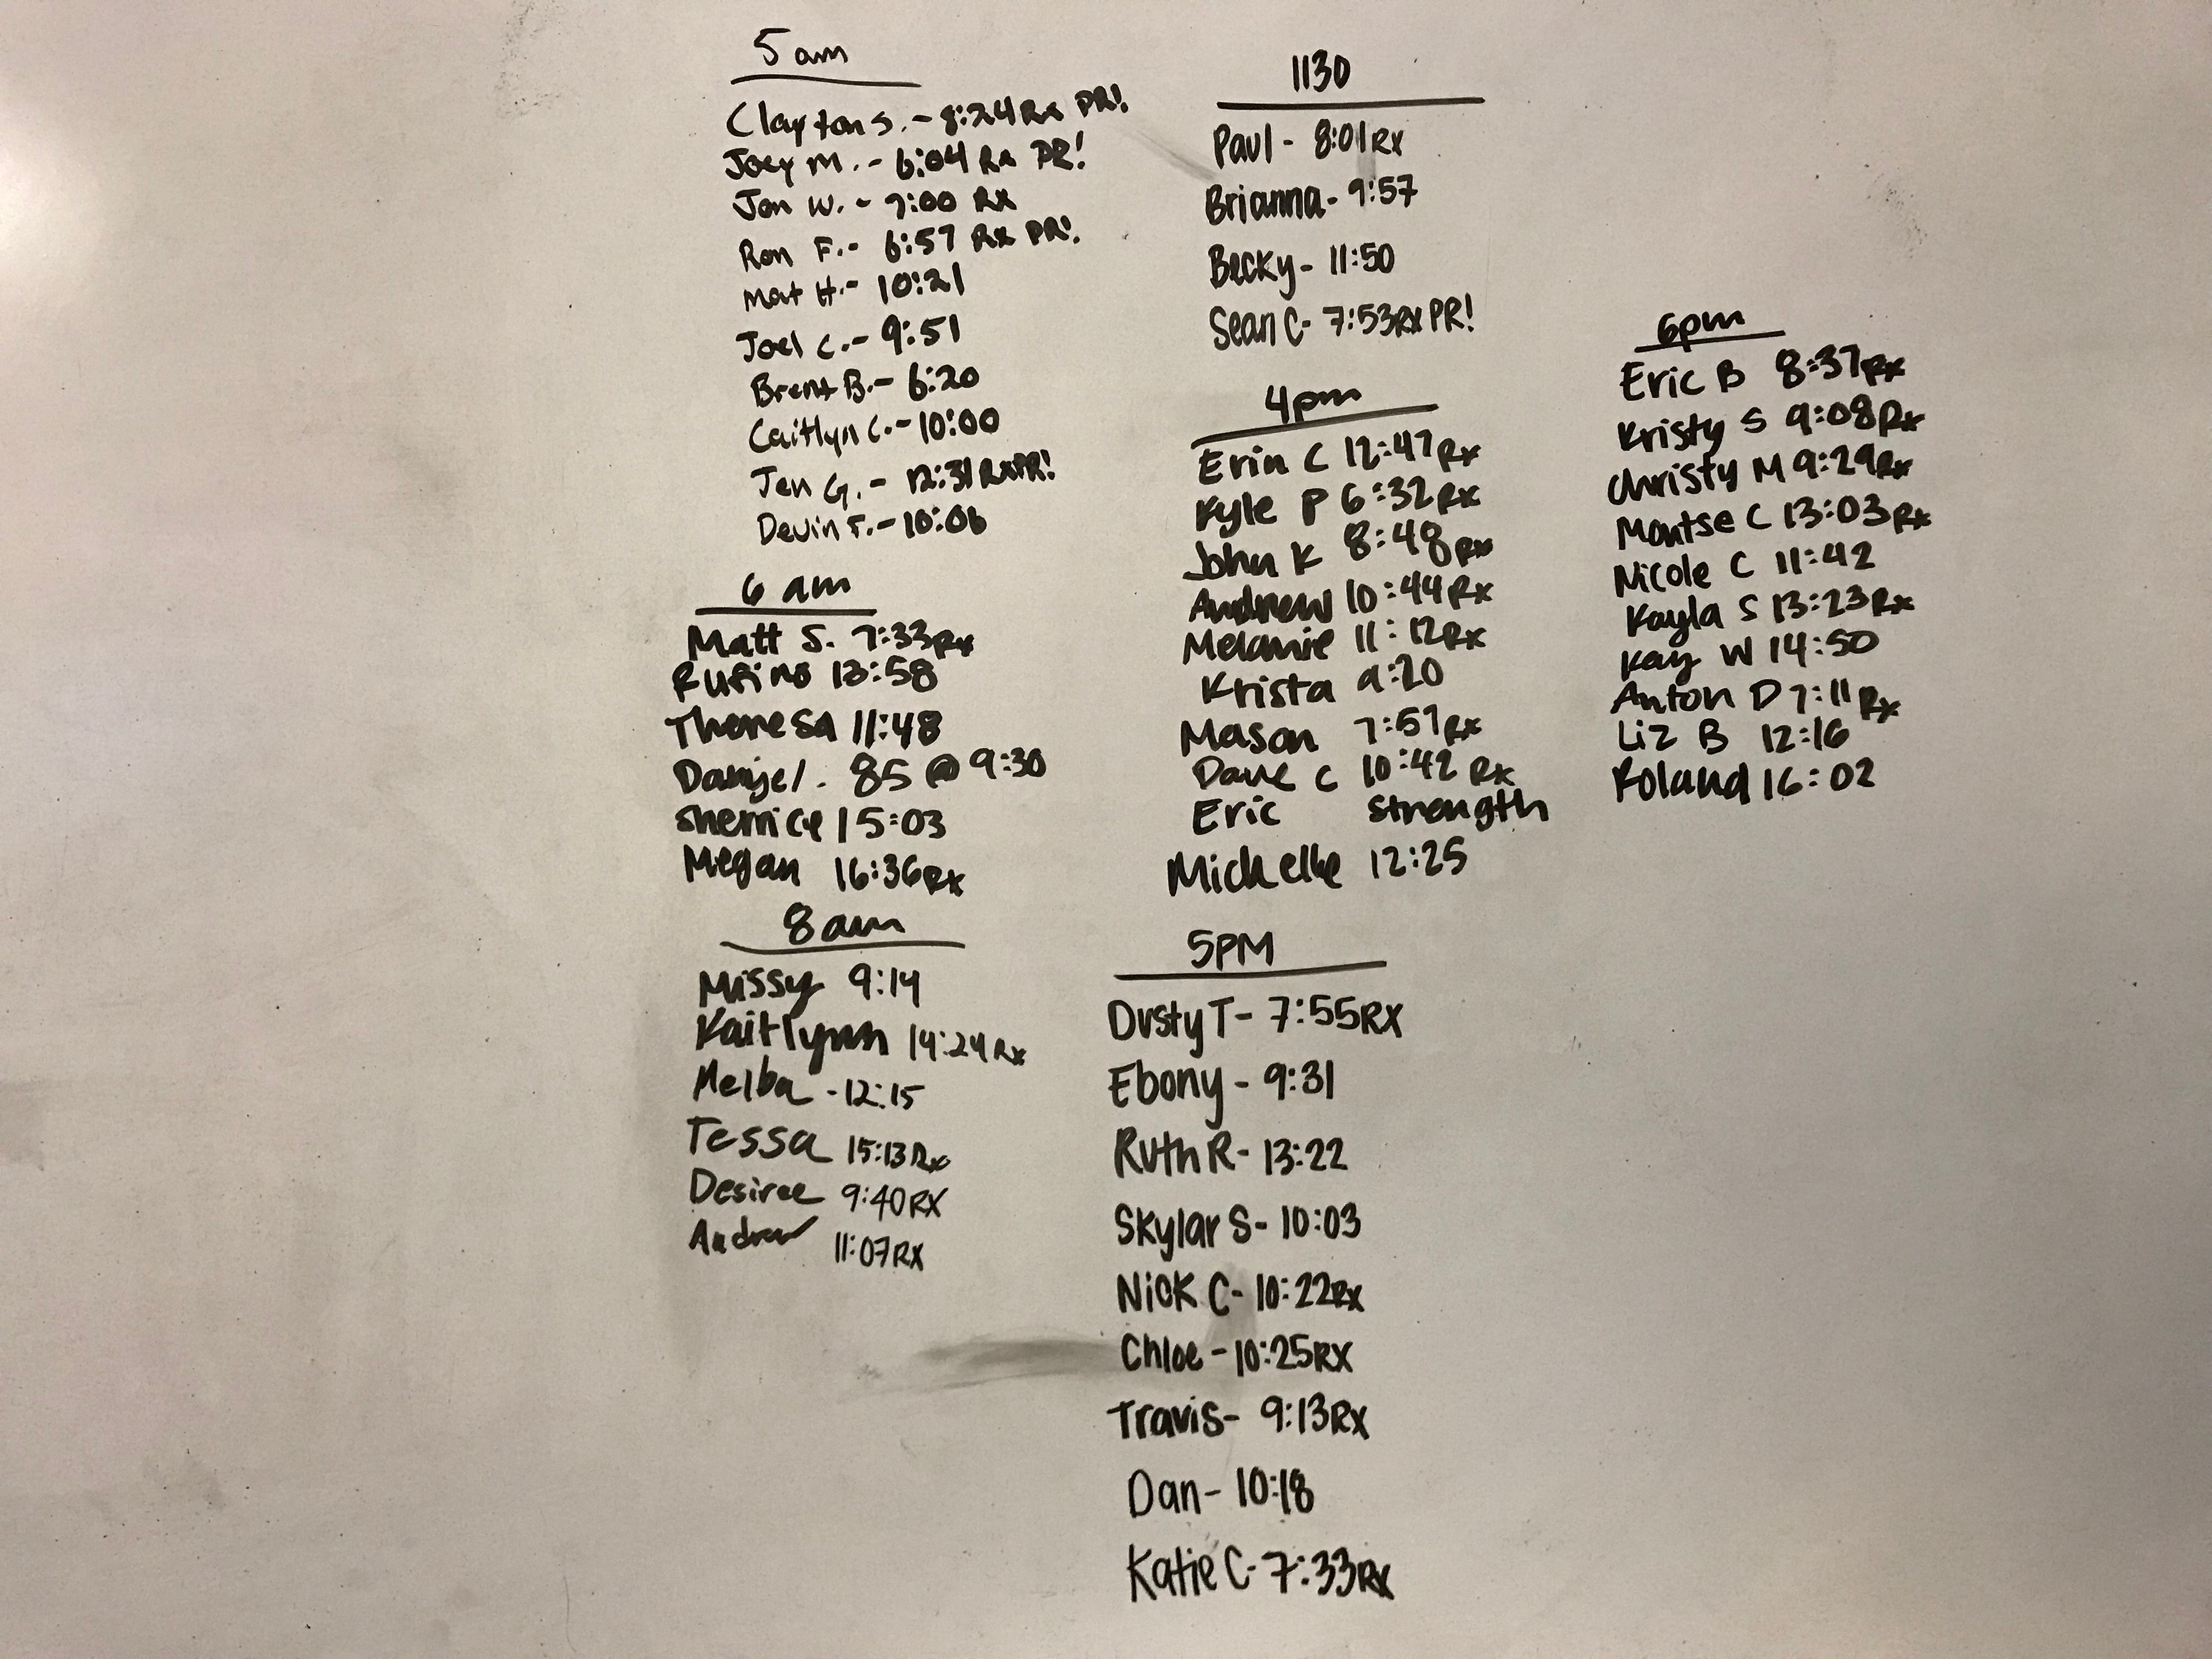 5 am
Clayton S. - 8:24 Rx PR!
Joey M. - 6:04 Rx PR!
Jon W. - 7:00 Rx
Ron F. - 6:57 Rx PR!
Mat H. - 10:21
Joel C. - 9:51
Brent B. - 6:20
Caitlyn C. - 10:00
Jen G. - 12:31 Rx PR!
Devin F. - 10:06
6 am
Matt S. 7:33 Rx
Rufino 13:58
Theresa 11:48
Daniel. 85 @ 9:30
Sherrice 15:03
Megan 16:36 Rx
8 am
Missy 9:14
Kaitlynn 14:24 Rx
Melba - 12:15
Tessa 15:13 Rx
Desiree 9:40 RX
Andrew 11:07 RX
1130
Paul - 8:01 RX
Brianna - 9:57
Becky - 11:50
Sean C - 7:53 RX PR!
4pm
Erin C 12:47 Rx
Kyle P 6:32 Rx
John K 8:48 Rx
Andrew 10:44 Rx
Melanie 11:12 Rx
Krista 9:20
Mason 7:57 Rx
Dave C 10:42 Rx
Eric Strength
Michelle 12:25
5PM
Dusty T - 7:55 RX
Ebony - 9:31
Ruth R - 13:22
Skylar S - 10:03
Nick C - 10:22 RX
Chloe - 10:25 RX
Travis - 9:13 RX
Dan - 10:18
Katie C - 7:33 RX
6pm
Eric B 8:37 Rx
Kristy S 9:08 Rx
Christy M 9:29 Rx
Montse C 13:03 Rx
Nicole C 11:42
Kayla S 13:23 Rx
Kay W 14:50
Anton D 7:11 Rx
Liz B 12:16
Roland 16:02